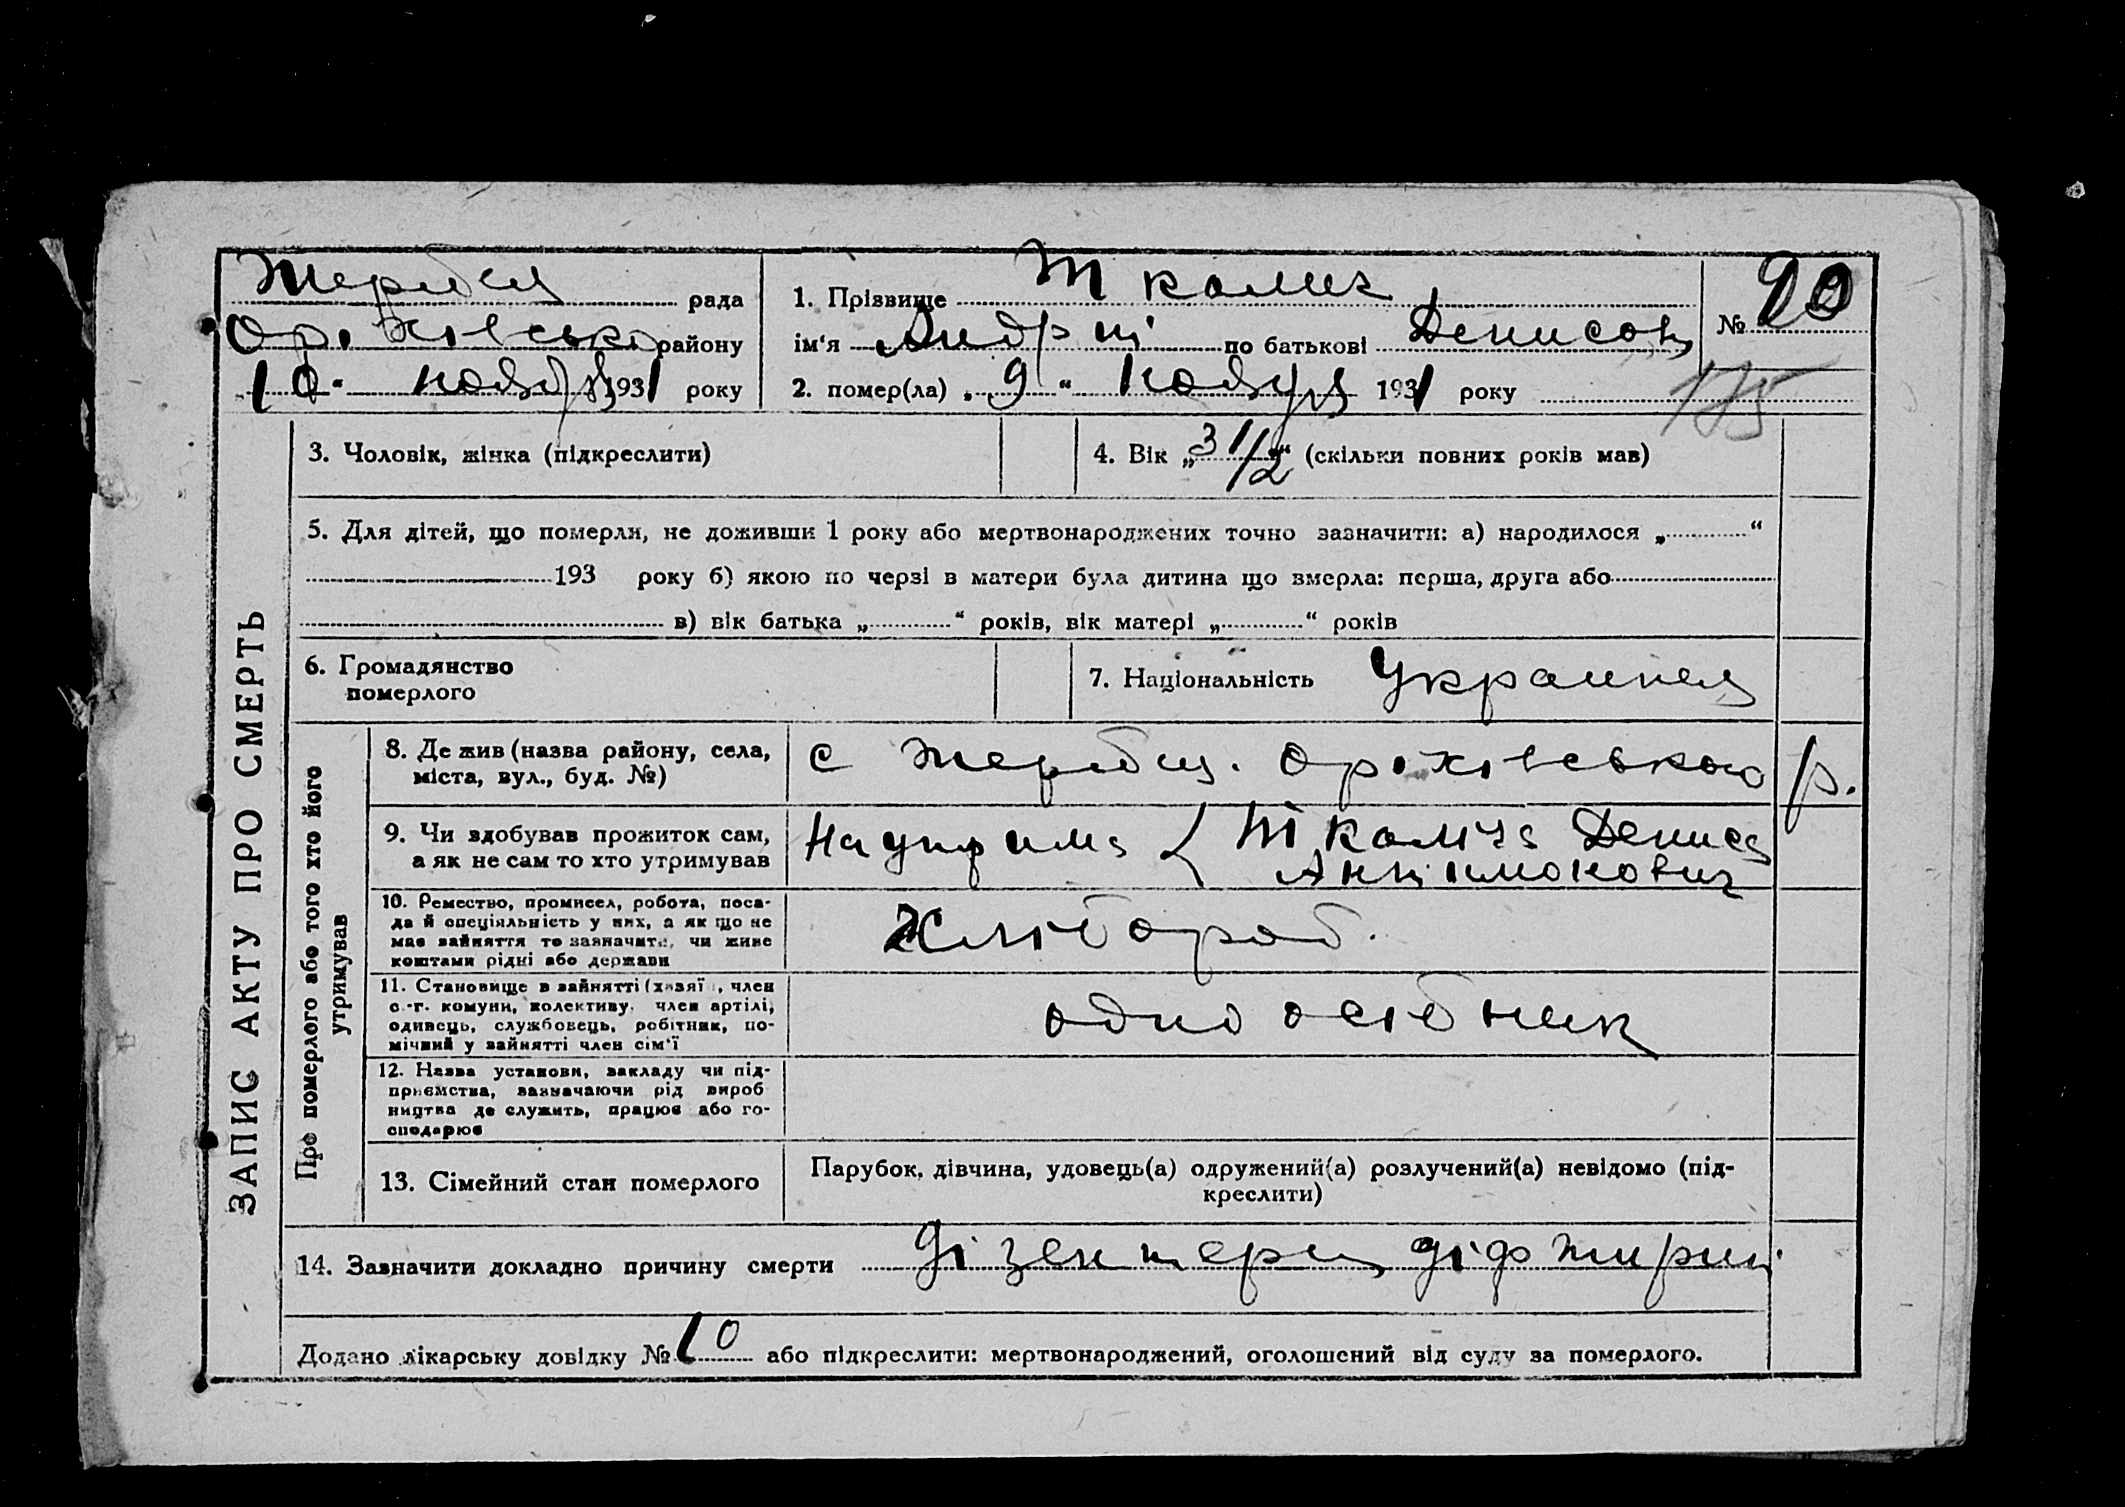 Жереб рада
Оріхівсько району
10 ноября 1931 року
1. Прізвище Ткалич
ім'я Андрій по батькові Денисов
2. помер(ла) „ 9 “ ноября 1931 року
№ 90
175
3. Чоловік, жінка (підкреслити)
4. Вік „3 1/2“ (скільки повних років мав)
5. Для дітей, що померли, не доживши 1 року або мертвонароджених точно зазначити: а) народилося „ “
193 року б) якою по черзі в матери була дитина що вмерла: перша, друга або
в) вік батька „ “ років, вік матері „ “ років
6. Громадянство
померлого
7. Національність
ЗАПИС АКТУ ПРО СМЕРТЬ
Про померлого або того хто його
утримував
8. Де жив (назва району, села,
міста, вул., буд. №)
с Жеребец. Оріхівського р.
9. Чи здобував прожиток сам,
а як не сам то хто утримував
На Ткалича Дениса
10. Ремество, промисел, робота, поса-
да й спеціяльність у них, а як що не
має зайняття то зазначити, чи живе
коштами рідні або держави
Хлібороб.
11. Становище в зайнятті (хазяї , член
с.-г. комуни, колективу, член артілі,
одинець, службовець, робітник, по-
мічний у зайнятті член сім'ї
одноосібник
12. Назва установи, закладу чи під-
приємства, зазначаючи рід вироб
ництва де служить, працює або го-
сподарює
13. Сімейний стан померлого
Парубок, дівчина, удовець(а) одружений(а) розлучений(а) невідомо (під-
креслити)
14. Зазначити докладно причину смерти дізентерия діфтирий
Додано лікарську довідку № 10 або підкреслити: мертвонароджений, оголошений від суду за померлого.